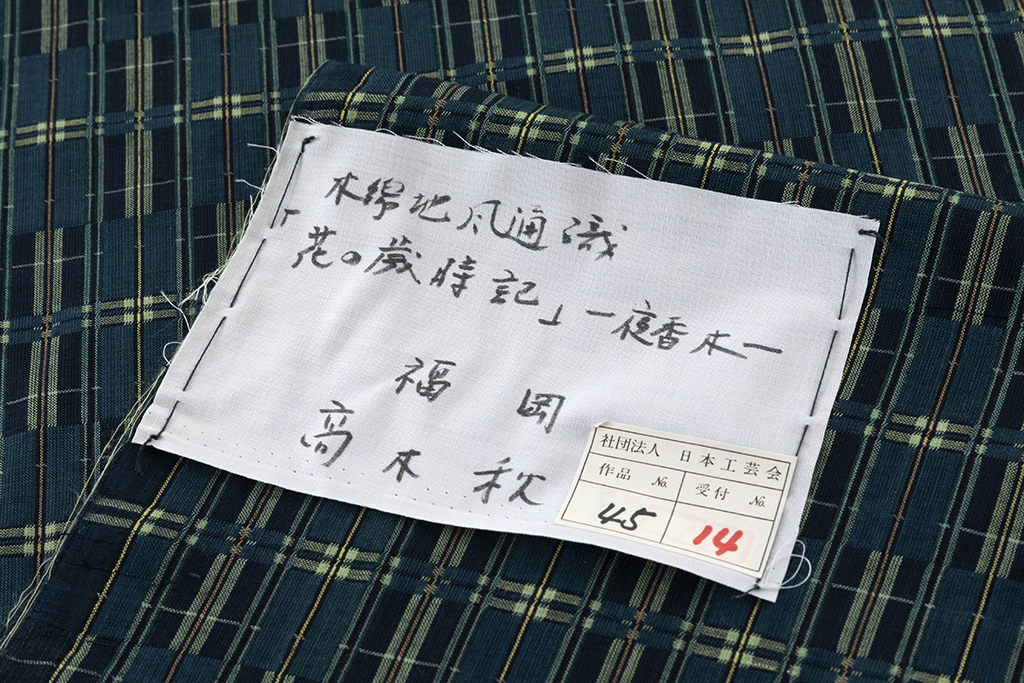 木綿地風通織
「花の歳時記」ー夜香木ー
福岡
高木秋
社団法人 日本工芸会
作品 No. 受付 No.
45 14